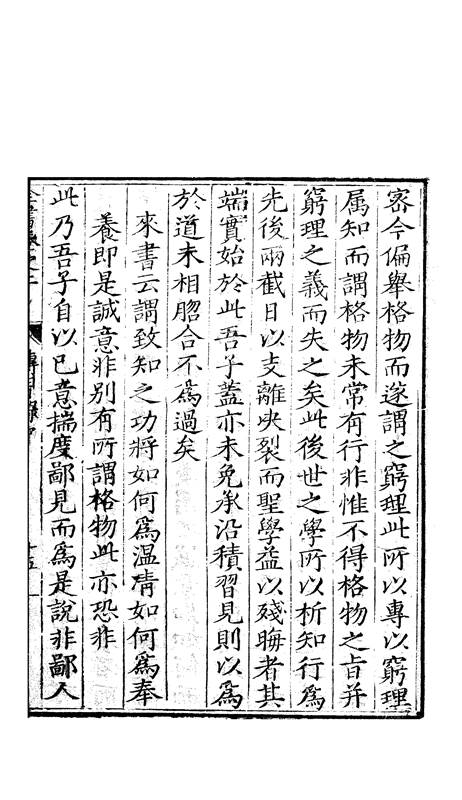 密今偏舉格物而遂謂之窮理此所以專以窮理
属知而謂格物未常有行非惟不得格物之旨并
窮理之義而失之矣此後世之學所以析知行為
先後兩截日以支離决裂而聖學益以殘晦者其
端實始於此吾子蓋亦未免承沿積習見則以為
於道未相脗合不為過矣
來書云謂致知之功將如何為温凊如何為奉
養即是誠意非别有所謂格物此亦恐非
此乃吾子自以已意揣度鄙見而為是說非鄙人